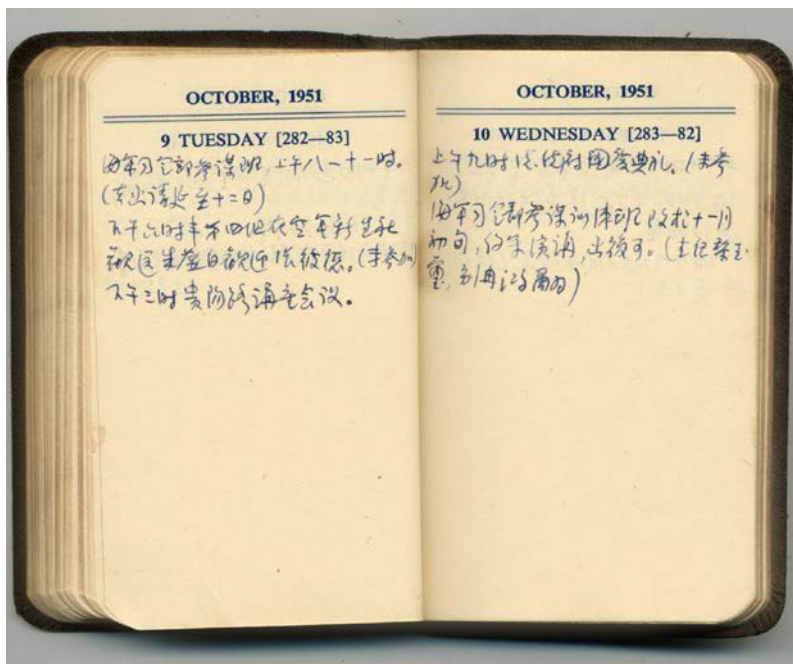 OCTOBER, 1951
9 TUESDAY [282—83]
海军司令部参谋班,上午八一十一时。
(去出请延至十二日)
下午六时半第四组在空军新生社
欢医生蓝日欢迎张彼德。(未参加)
下午三时贵阳路讲座会议。
OCTOBER, 1951
10 WEDNESDAY [283—82]
上午九时总统府国庆典礼。(未参
加)
海军司令部参谋训练班改于十一月
初旬,约余演讲,出复可。(主任
重,